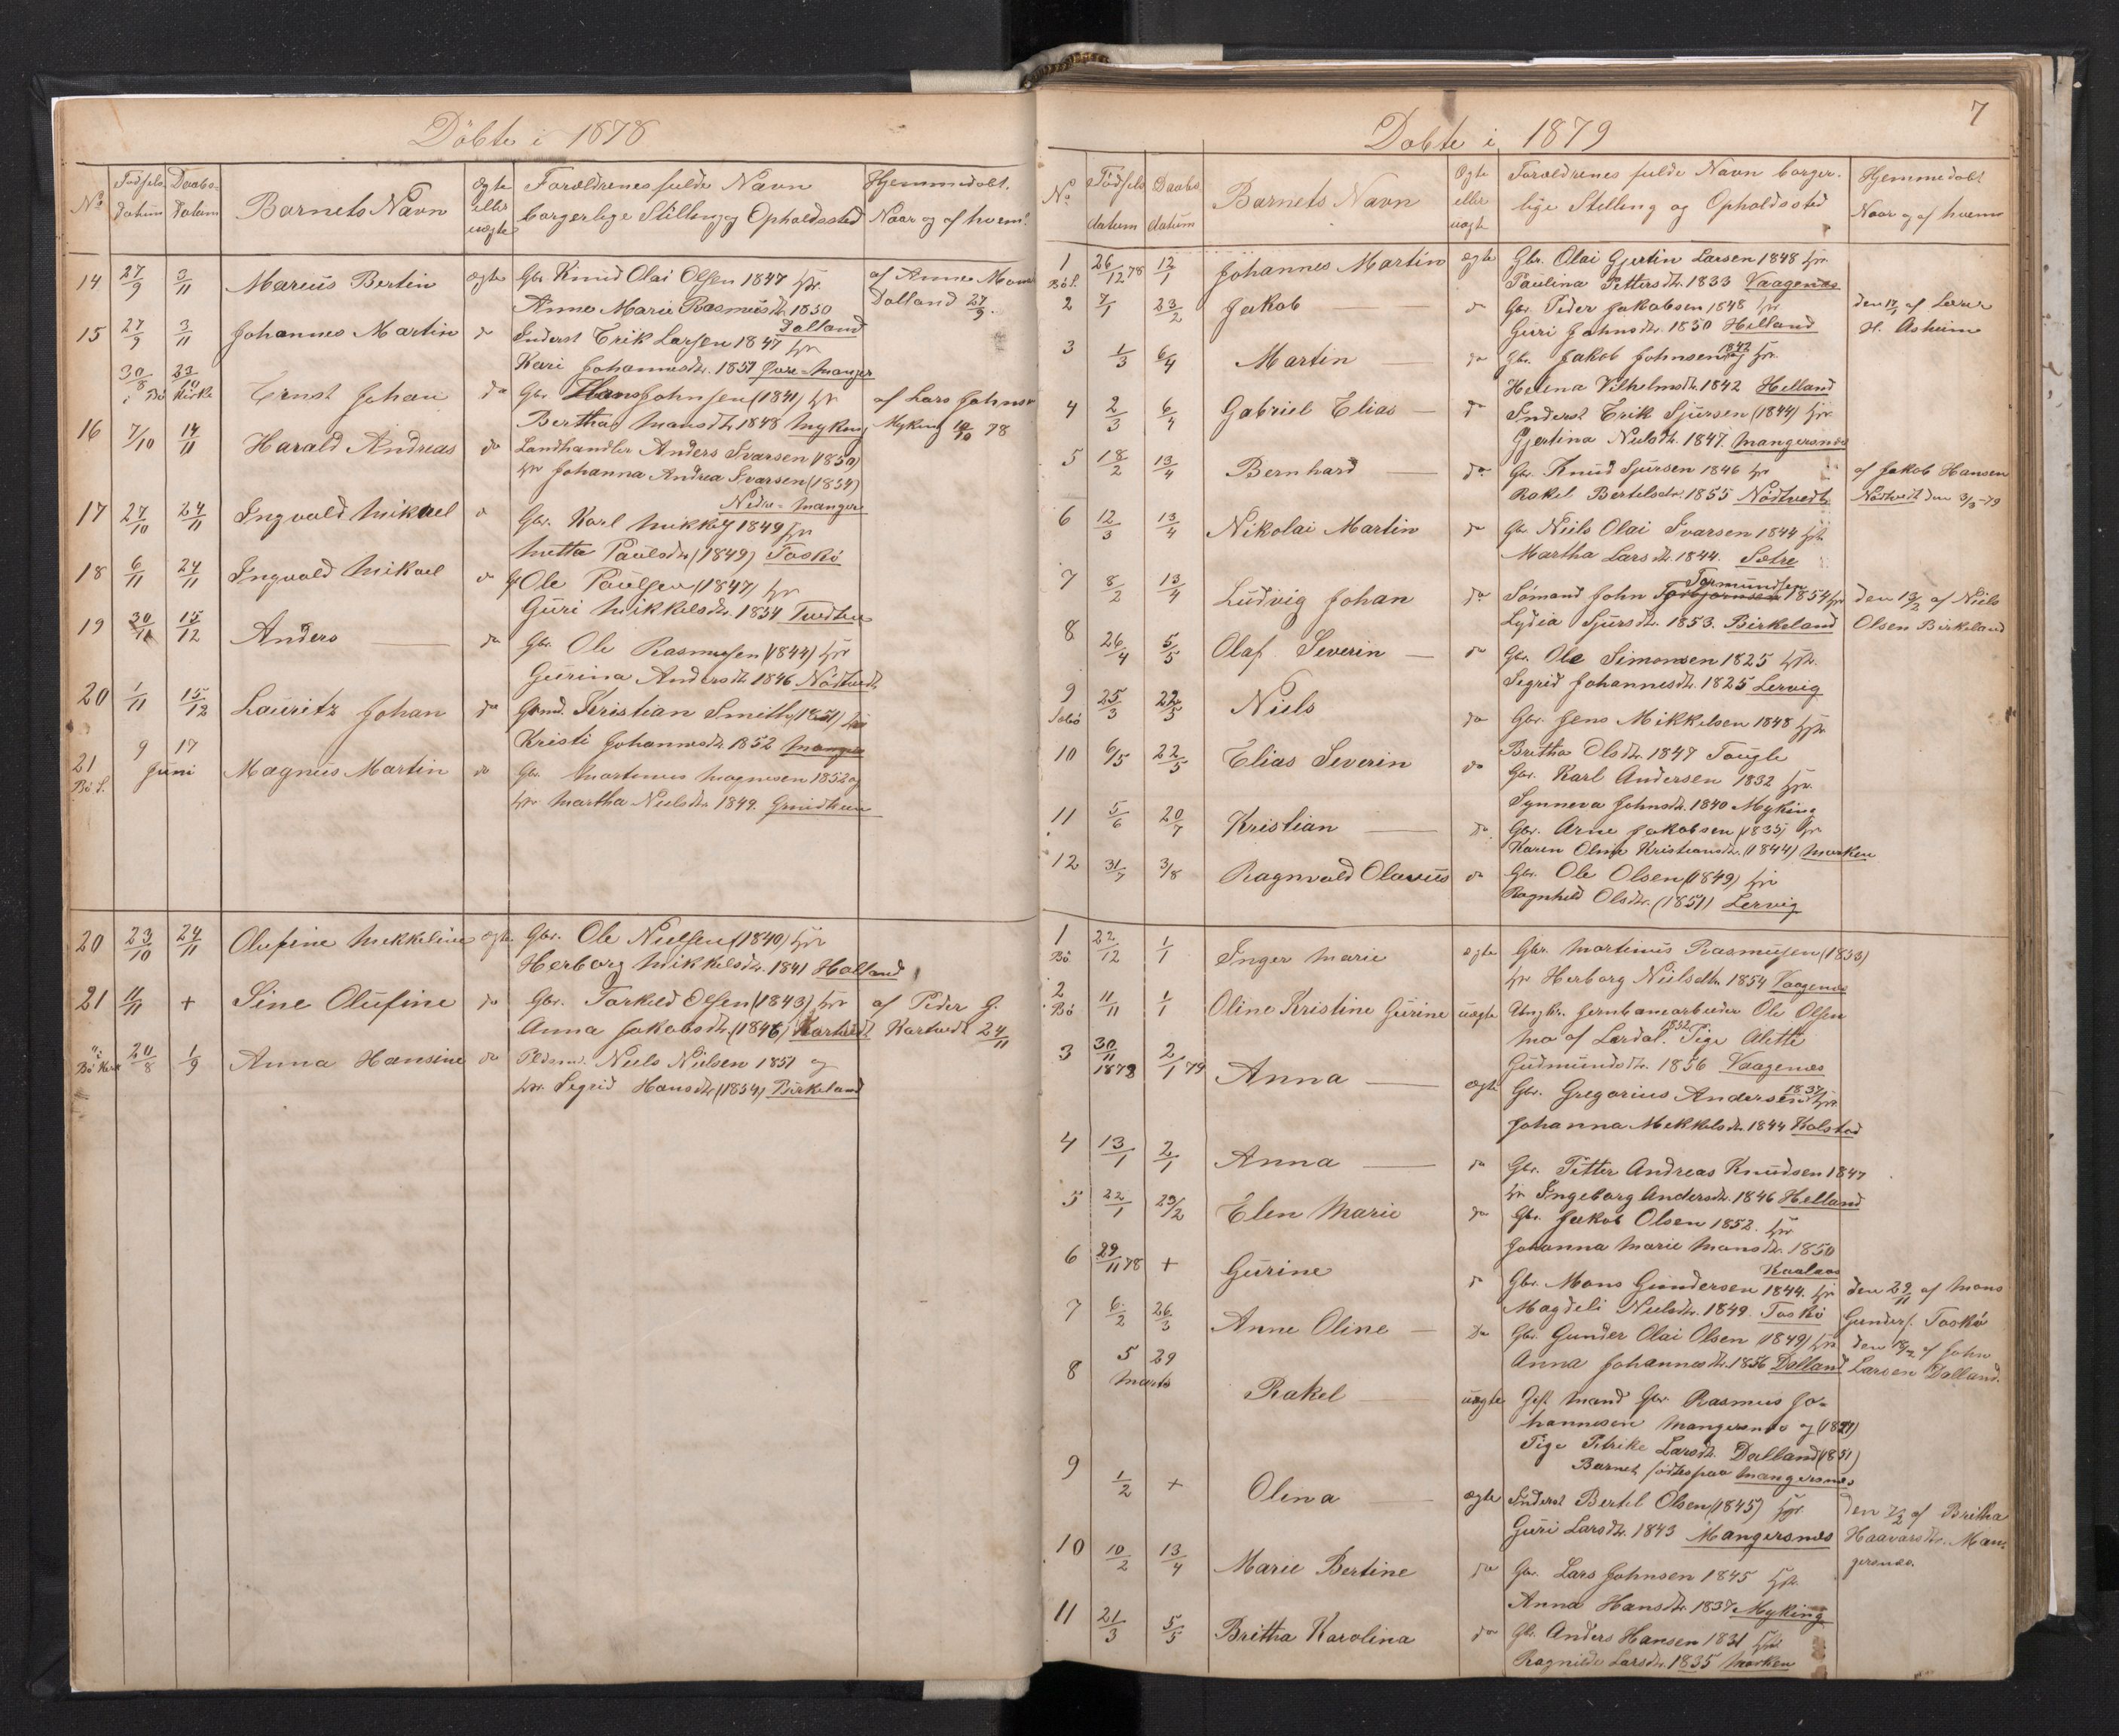 Döbte i 1878
No
Födsels datum
Daabs datum
Barnets Navn
Ægte eller uægte
Forældrenes fulde Navn borgerlige Stilling og Opholdssted
Hjemmedöbt. Naar og af hvem?
14 27/9 3/11 Marius Bertin ægte Gbr. Knud Olai Olsen 1847 Hr.
Anne Marie Rasmusdr. 1850 Dalland
af Anne Mons
Dalland 27/9.
15 27/9 3/11 Johannes Martin do Inderst Erik Larsen 1847 Hr
Kari Johannesdr. 1851 Övre-Manger
30/8 23/10 i Bö Kirke Ernst Johan do Gbr. Hans Johnsen (1841) Hr
Bertha Mansdr. 1848 Myking
af Lars Johns.
Myking 10/10 78
16 7/10 14/11 Harald Andreas do Landhandler Anders Ivarsen (1850)
Hr Johanna Andrea Ivarsen (1854)
Nedre-Manger
17 27/10 24/11 Ingvald Mikael do Gbr. Karl Mikkelj 1849 Hr
Mette Paulsdr. (1849) Toskö
18 6/11 24/11 Ingvald Mikael do Ole Paulsen (1847) Hr
Guri Mikkelsdr. 1854 Tvedten
19 30/11 15/12 Anders do Gbr. Ole Rasmussen (1844) Hr
Gurina Andersdr. 1846 Nödtvedt
20 1/11 15/12 Lauritz Johan do Gbmd. Kristian Smith (1851) Hr
Kristi Johannesdr. 1852 Manger
21 Bö S. 9 17 Juni Magnus Martin do Gbr. Martinus Magnusen 1852 og
Hr Martha Nielsdr. 1849.
20 23/10 24/11 Olufine Mekkeline ægte Gbr. Ole Nielsen (1840) Hr
Herborg Mikkelsdr. 1841 Halland
21 11/11 + Sine Olufine do Gbr. Torkild Olsen (1843) Hr
Anna Jakobsdr. (1846) Kartvedt
af Peder G.
Kartvedt 24/11
i Bö Kirke 20/8 1/9 Anna Hansine do Niels Nielsen 1851 og
Hr. Segrid Hansdr. (1854) Birkeland
7
Döbte i 1879
No
Födsels datum
Daabs datum
Barnets Navn
Ægte eller uægte
Forældrenes fulde Navn borgerlige Stilling og Opholdssted
Hjemmedöbt Naar og af hvem
1 Bö S. 26/12 78 12/1 Johannes Martin ægte Gbr. Olai Gjertin Larsen 1848 Hr
Paulina Pettersdr. 1833 Vaagenæs
2 7/1 23/2 Jakob do Gbr. Peder Jakobsen 1848 Hr
Guri Johnsdr. 1850 Helland
den 17/1 af Lærer
H. Asheim
3 1/3 6/4 Martin do Gbr. Jakob Johnsen 1842 Hr.
Helena Vilhelmsdr. 1842 Helland
4 2/3 6/4 Gabriel Elias do Inderst Erik Sjursen (1844) Hr
Gjertina Nielsdr. 1847. Mangersnæs
5 18/2 13/4 Bernhard do Gbr. Knud Sjursen 1846 Hr
Rakel Bertelsdr. 1855 Nödtvedt
af Jakob Hansen
Nödtvedt den 3/3-79
6 12/3 13/4 Nikolai Martin do Gbr. Niels Olai Ivarsen 1844 Hr
Martha Larsdr. 1844. Sætre
7 8/2 13/4 Ludvig Johan do Sömand John Tormundsen 1854 Hr
Lydia Sjursdr. 1853. Birkeland
den 13/2 af Niels
Olsen Birkeland
8 26/4 5/5 Olaf Severin do Gbr. Ole Simonsen 1825 Hr.
Segrid Johannesdr. 1825 Lervig
9 Sebö 25/3 22/5 Niels do Gbr. Jens Mikkelsen 1848 Hr
Britha Olsdr. 1847 Taugle
10 6/5 22/5 Elias Severin do Gbr. Karl Andersen 1832 Hr.
Synneva Johnsdr. 1840 Myking
11 5/6 20/7 Kristian do Gbr. Arne Jakobsen (1835) Hr
Karen Oline Kristiansdr. (1844) Marken
12 31/7 3/8 Ragnvald Olavus do Gbr. Ole Olsen (1849) Hr
Ragnhild Olsdr. (1851) Lervig
1 Bö 22/12 1/1 Inger Marie ægte Gbr. Martinus Rasmusen (1853)
Hr Herborg Nielsdtr. 1854 Vaagenæs
2 Bö 11/11 1/1 Oline Kristine Gurine uægte Ungkr. Jernbanearbeider Ole Olsen
Mo af Lærdal. 1852 Pige Alette
Gudmundsdr. 1856 Vaagenæs
3 30/11 1878 2/1 79 Anna ægte Gbr. Gregorius Andersen 1837 Hr
Johanna Mekkelsdr. 1844 Kolstad
4 13/1 2/1 Anna do Gbr. Petter Andreas Knudsen 1847
Hr Ingeborg Andersdr. 1846 Helland
5 22/1 23/2 Elen Marie do Gbr. Jakob Olsen 1852. Hr
Johanna Marie Monsdr. 1850
Kaalaas
6 29/11 78 + Gurine do Gbr. Mons Gundersen 1844. Hr
Magdeli Nielsdr. 1849. Toskö
den 29/11 af Mons
Gunders. Toskö
7 6/2 26/3 Anne Oline do Gbr. Gunder Olai Olsen (1849) Hr
Anna Johannesdr. 1856 Dalland
den 18/2 af John
Larsen Dalland.
8 5 29 Marts Rakel uægte Gift Mand Gbr. Rasmus Johannesen Mangersnæs og (1821)
Pige Petrike Larsdr. Dalland (1851)
Barnet födtes paa Mangersnæs
9 1/2 + Olena ægte Inderst Bertel Olsen (1845) Hr.
Guri Larsdr. 1843 Mangersnæs
den 7/2 af Britha
Haavardsdr. Mangersnæs.
10 10/2 13/4 Marie Bertine do Gbr. Lars Johnsen 1845 Hr.
Anna Hansdr. 1837 Myking
11 21/3 5/5 Britha Karolina do Gbr. Anders Hansen 1831 Hr
Ragnilde Larsdr. 1835 Marken